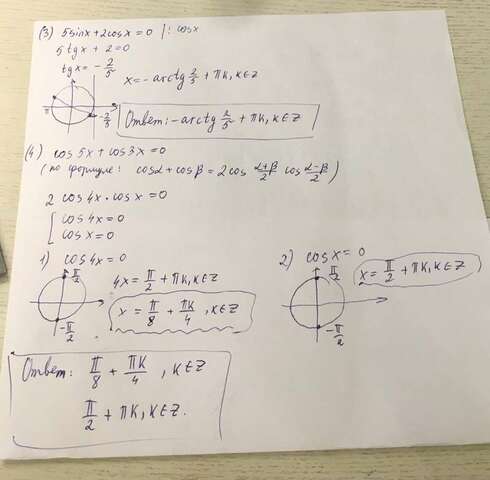 (3) 5sinx+2cosx=0 |: cosx
5tgx+2=0
tgx=-2/5
x=-arctg 2/5+πk, k∈Z
π
-2/5
Ответ: -arctg 2/5+πk, k∈Z
(4) cos5x+cos3x=0
(по формуле: cosα+cosβ=2cos (α+β)/2 cos (α-β)/2)
2 cos4x·cosx=0
[cos4x=0
cosx=0
1) cos4x=0
π/2
-π/2
4x=π/2+πk, k∈Z
x=π/8+πk/4, k∈Z
2) cosx=0
π/2
-π/2
x=π/2+πk, k∈Z
Ответ: π/8+πk/4, k∈Z
π/2+πk, k∈Z.